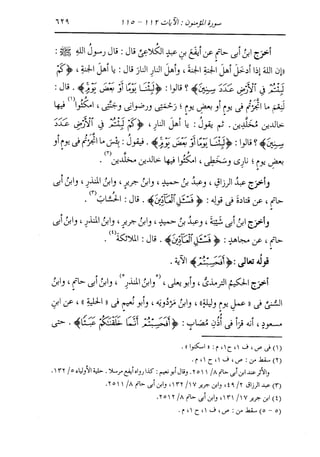 سورة المؤمنون : الآيات ١١٢ - ١١٥ ٦٢٩
أخرج ابنُ أبى حاتمٍ عن أيفعَ بنِ عبدٍ الكَلَاعىِّ قال : قال رسولُ اللهِ ﷺ :
«إن اللهَ إذا أدخَل أهلَ الجنةِ الجنةَ ، وأهلَ النارِ النارَ قال : يا أهلَ الجنةِ ، ﴿كَمْ
لَبِثْتُمْ فِي ٱلْأَرْضِ عَدَدَ سِنِينَ﴾ ؟ قالوا : ﴿لَبِثْنَا يَوْمًا أَوْ بَعْضَ يَوْمٍ﴾ . قال :
لَنِعْمَ ما اتَّجَرْتُم فى يومٍ أو بعضِ يومٍ ؛ رحمتى ورضوانى وجنَّتى ، امكُثوا(١) فيها
خالدين مخلَّدين . ثم يقولُ : يا أهلَ النارِ ، ﴿كَمْ لَبِثْتُمْ فِي ٱلْأَرْضِ عَدَدَ
سِنِينَ﴾ ؟ قالوا : ﴿لَبِثْنَا يَوْمًا أَوْ بَعْضَ يَوْمٍ﴾ . فيقولُ : بئس ما اتَّجَرْتُم فى يومٍ أو
بعضِ يومٍ ؛ نارى وسَخَطى ، امكُثوا فيها خالدين مخلَّدين»(٢) .
وأخرَج عبدُ الرزاقِ ، وعبدُ بنُ حميدٍ ، وابنُ جريرٍ ، وابنُ المنذرِ ، وابنُ أبى
حاتمٍ ، عن قتادةَ فى قولِه : ﴿فَسْـَٔلِ ٱلْعَآدِّينَ﴾ . قال : الحُسَّابَ(٣) .
وأخرَج ابنُ أبى شيبةَ ، وعبدُ بنُ حميدٍ ، وابنُ جريرٍ ، وابنُ المنذرِ ، وابنُ أبى
حاتمٍ ، عن مجاهدٍ : ﴿فَسْـَٔلِ ٱلْعَآدِّينَ﴾ . قال : الملائكةَ(٤) .
قولُه تعالى : ﴿أَفَحَسِبْتُمْ﴾ الآية .
أخرَج الحكيمُ الترمذىُّ ، وأبو يعلى ، (٥وابنُ المنذرِ٥) ، وابنُ أبى حاتمٍ ، وابنُ
السُّنىِّ فى «عملِ يومٍ وليلةٍ» ، وابنُ مَرْدُويَه ، وأبو نُعيمٍ فى «الحليةِ» ، عن ابنِ
مسعودٍ ، أنه قرَأ فى أُذُنِ مُصابٍ : ﴿أَفَحَسِبْتُمْ أَنَّمَا خَلَقْنَٰكُمْ عَبَثًا﴾ . حتى
(١) فى ص ، ف ١ ، ح ١ ، م : «اسكنوا» .
(٢) سقط من : ص ، ف ١ ، ح ١ ، م .
والأثر عند ابن أبى حاتم ٨/ ٢٥١١. وقال أبو نعيم : كذا رواه أيفع مرسلا . حلية الأولياء ٥/ ١٣٢.
(٣) عبد الرزاق ٢/ ٤٩، وابن جرير ١٧/ ١٣٢، وابن أبى حاتم ٨/ ٢٥١١.
(٤) ابن جرير ١٧/ ١٣١، وابن أبى حاتم ٨/ ٢٥١٢.
(٥ - ٥) سقط من : ص ، ف ١ ، ح ١ ، م .